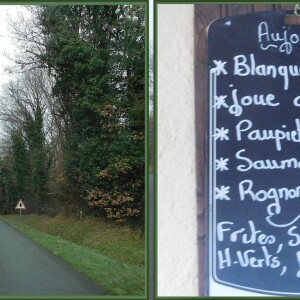 Aujo
* Blanqu
* joue
* Paupi
* Saum
* Rognon
Frites, S
H. Verts,